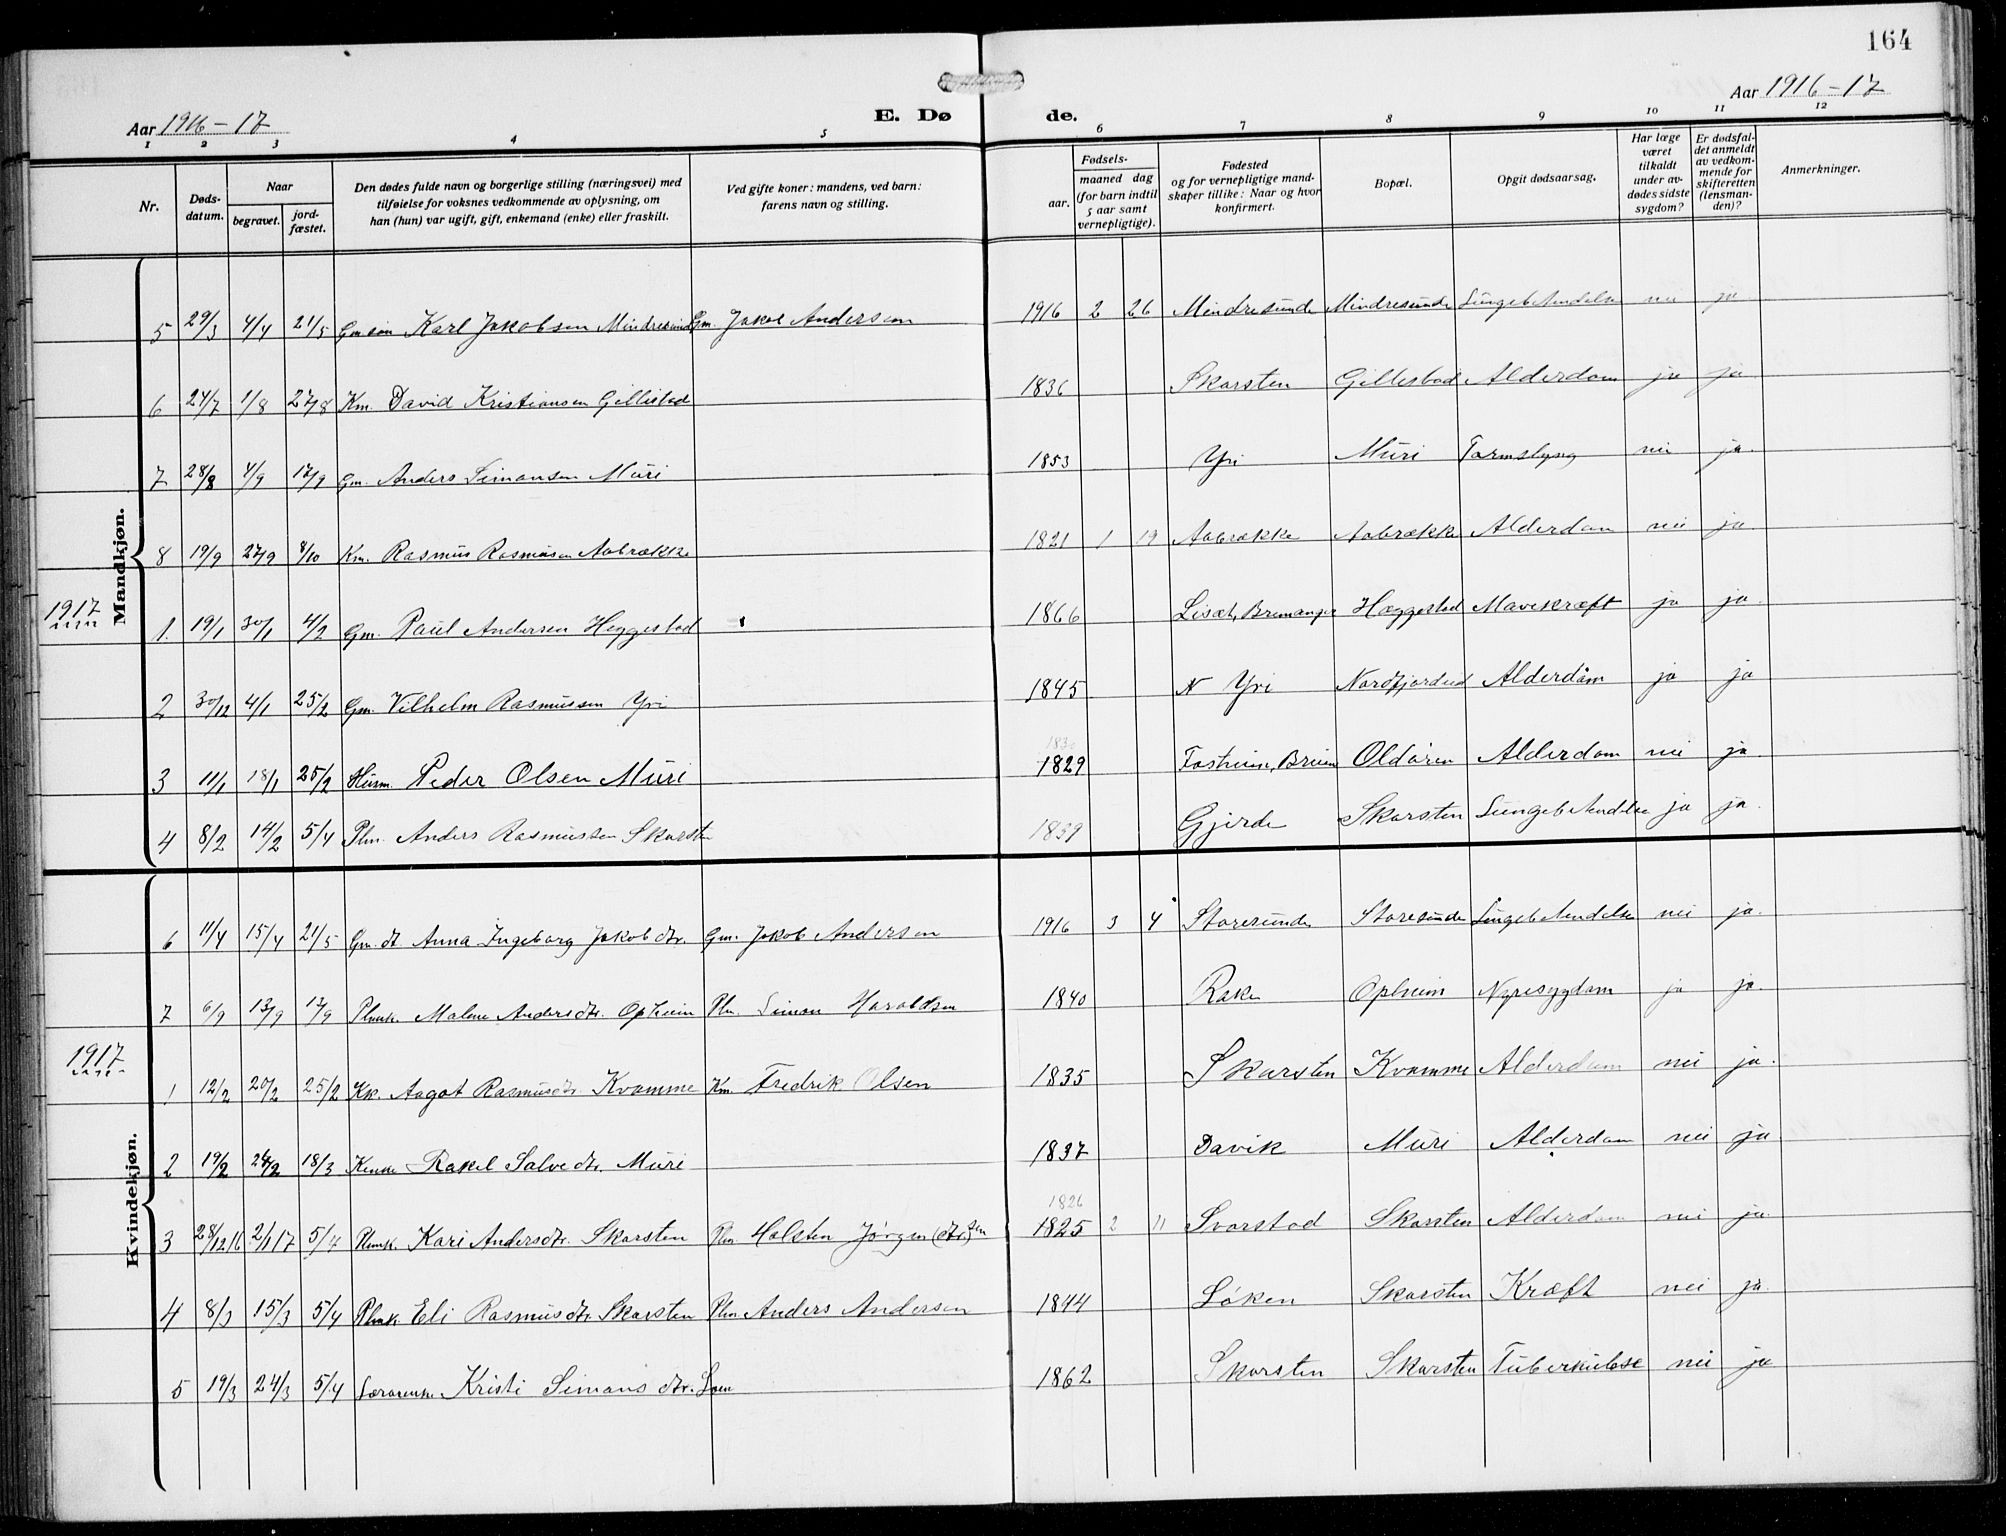 164
Aar 1916-17 E. Døde. Aar 1916-17
1 2 3 4 5 6 7 8 9 10 11 12
Nr. Døds-datum. Naar begravet. jord-fæstet. Den dødes fulde navn og borgerlige stilling (næringsvei) med tilføielse for voksnes vedkommende av oplysning, om han (hun) var ugift, gift, enkemand (enke) eller fraskilt. Ved gifte koner: mandens, ved barn: farens navn og stilling. Fødsels- aar. maaned dag (for barn indtil 5 aar samt vernepligtige). Fødested og for vernepligtige mand-skaper tillike: Naar og hvor konfirmert. Bopæl. Opgit dødsaarsag. Har læge været tilkaldt under av-dødes sidste sygdom? Er dødsfal-det anmeldt av vedkom-mende for skifteretten (lensman-den)? Anmerkninger.
Mandkjøn.
5 29/3 4/4 21/5 Gm søn Karl Jakobsen Mindresunde Gm. Jakob Andersen 1916 2 26 Mindresunde Mindresunde Lungebetændelse nei ja
6 24/7 1/8 27/8 Km. David Kristiansen Gillestad 1836 Skarsten Gillestad Alderdom ja ja
7 28/8 4/9 17/9 Gm. Anders Simonsen Muri 1853 Yri Muri Tarmslyng nei ja.
8 19/9 27/9 8/10 Km. Rasmus Rasmussen Aabrække 1821 1 19 Aabrække Aabrække Alderdom nei ja.
1917
1. 19/1 30/1 4/2 Gm. Paul Andersen Heggestad 1866 Lisæt, Bremanger Hæggestad Mavekræft ja ja.
2 30/12 4/1 25/2 Gm. Vilhelm Rasmussen Yri 1845 N Yri Nordfjordeid Alderdom ja ja
3 11/1 18/1 25/2 Husm. Peder Olsen Muri 1830 1829 Fosheim, Breim Oldøren Alderdom nei ja
4 8/2 14/2 5/4 Plm. Anders Rasmussen Skarsten 1839 Gjerde Skarsten Lungebetændelse ja ja.
Kvindekjøn.
6 11/4 15/4 21/5 Gm. dt. Anna Ingeborg Jakobdtr. Gm. Jakob Andersen 1916 3 4 Storesunde Storesunde Lungebetændelse nei ja.
7 6/9 13/9 17/9 Plmk. Malene Andersdtr. Opheim Plm. Simon Haraldsen 1840 Rake Opheim Nyresygdom ja ja.
1917
1 12/2 20/2 25/2 Kk. Aagot Rasmusdtr. Kvamme Km. Fredrik Olsen 1835 Skarsten Kvamme Alderdom nei ja.
2 19/2 24/2 18/3 Kenke Rakel Salvedtr. Muri 1837 Davik Muri Alderdom nei ja
3 28/12 16 2/1 17 5/4 Plmk. Kari Andersdtr. Skarsten Plm Holsten Jørgen(dtr.)sen 1826 1825 2 11 Svorstad Skarsten Alderdom nei ja
4 8/3 15/3 5/4 Plmk. Eli Rasmusdtr. Skarsten Plm Anders Andersen 1844 Løken Skarsten Kræft nei ja.
5 19/3 24/3 5/4 Lærerenke Kristi Simonsdtr. Loen 1862 Skarsten Skarsten Tuberkulose nei ja